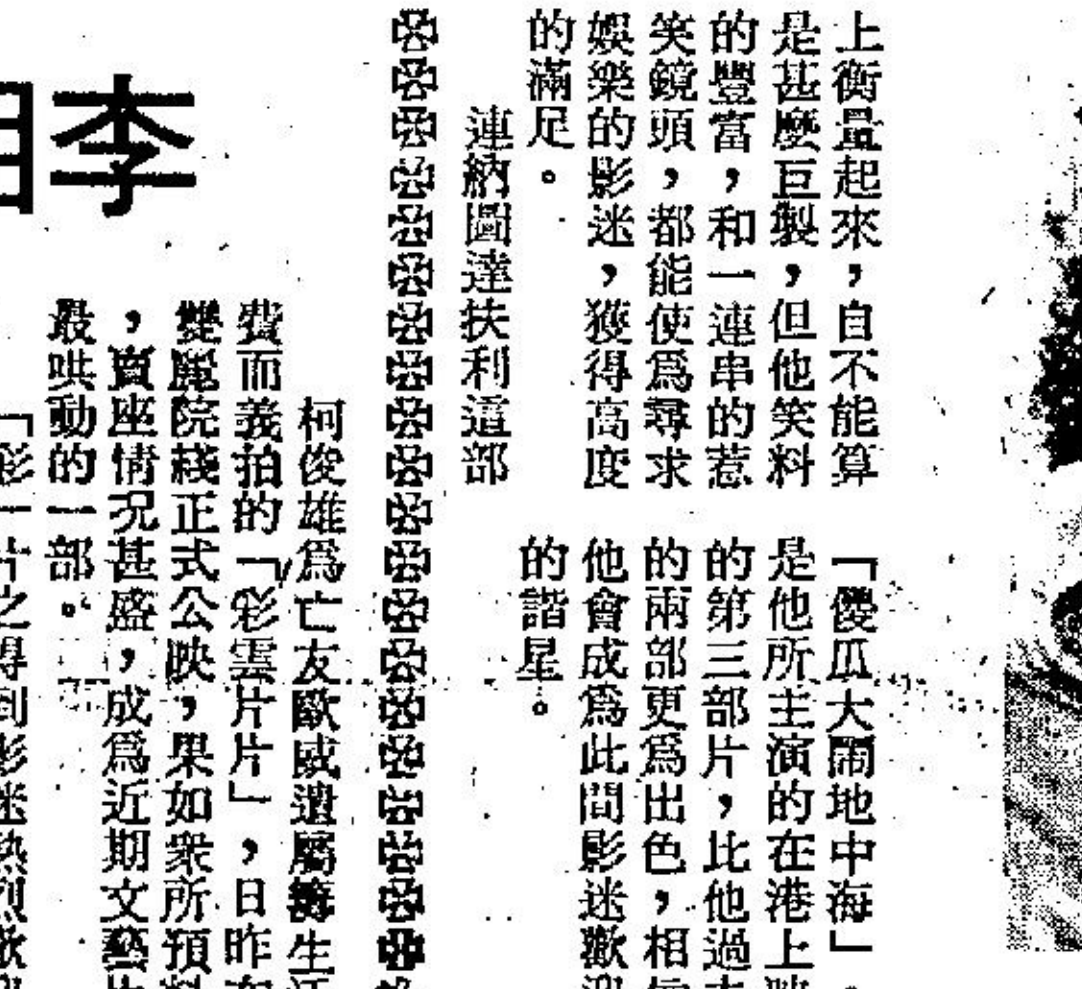 上衡量起來,自不能算
是甚麼巨製,但他笑料
的豐富,和一連串的惹
笑鏡頭,都能使爲尋求
娛樂的影迷,獲得高度
的滿足。
連納圖達扶利這部
「儍瓜大鬧地中海」,
是他所主演的在港上映
的第三部片,比他過去
的兩部更爲出色,相信
他會成爲此間影迷歡迎
的諧星。
李
柯俊雄爲亡友歐威遺屬籌生活
費而義拍的「彩雲片片」,日昨在
雙麗院綫正式公映,果如衆所預料
,賣座情況甚盛,成爲近期文藝片
最哄動的一部。
「彩一片之得到影迷熱烈歡迎